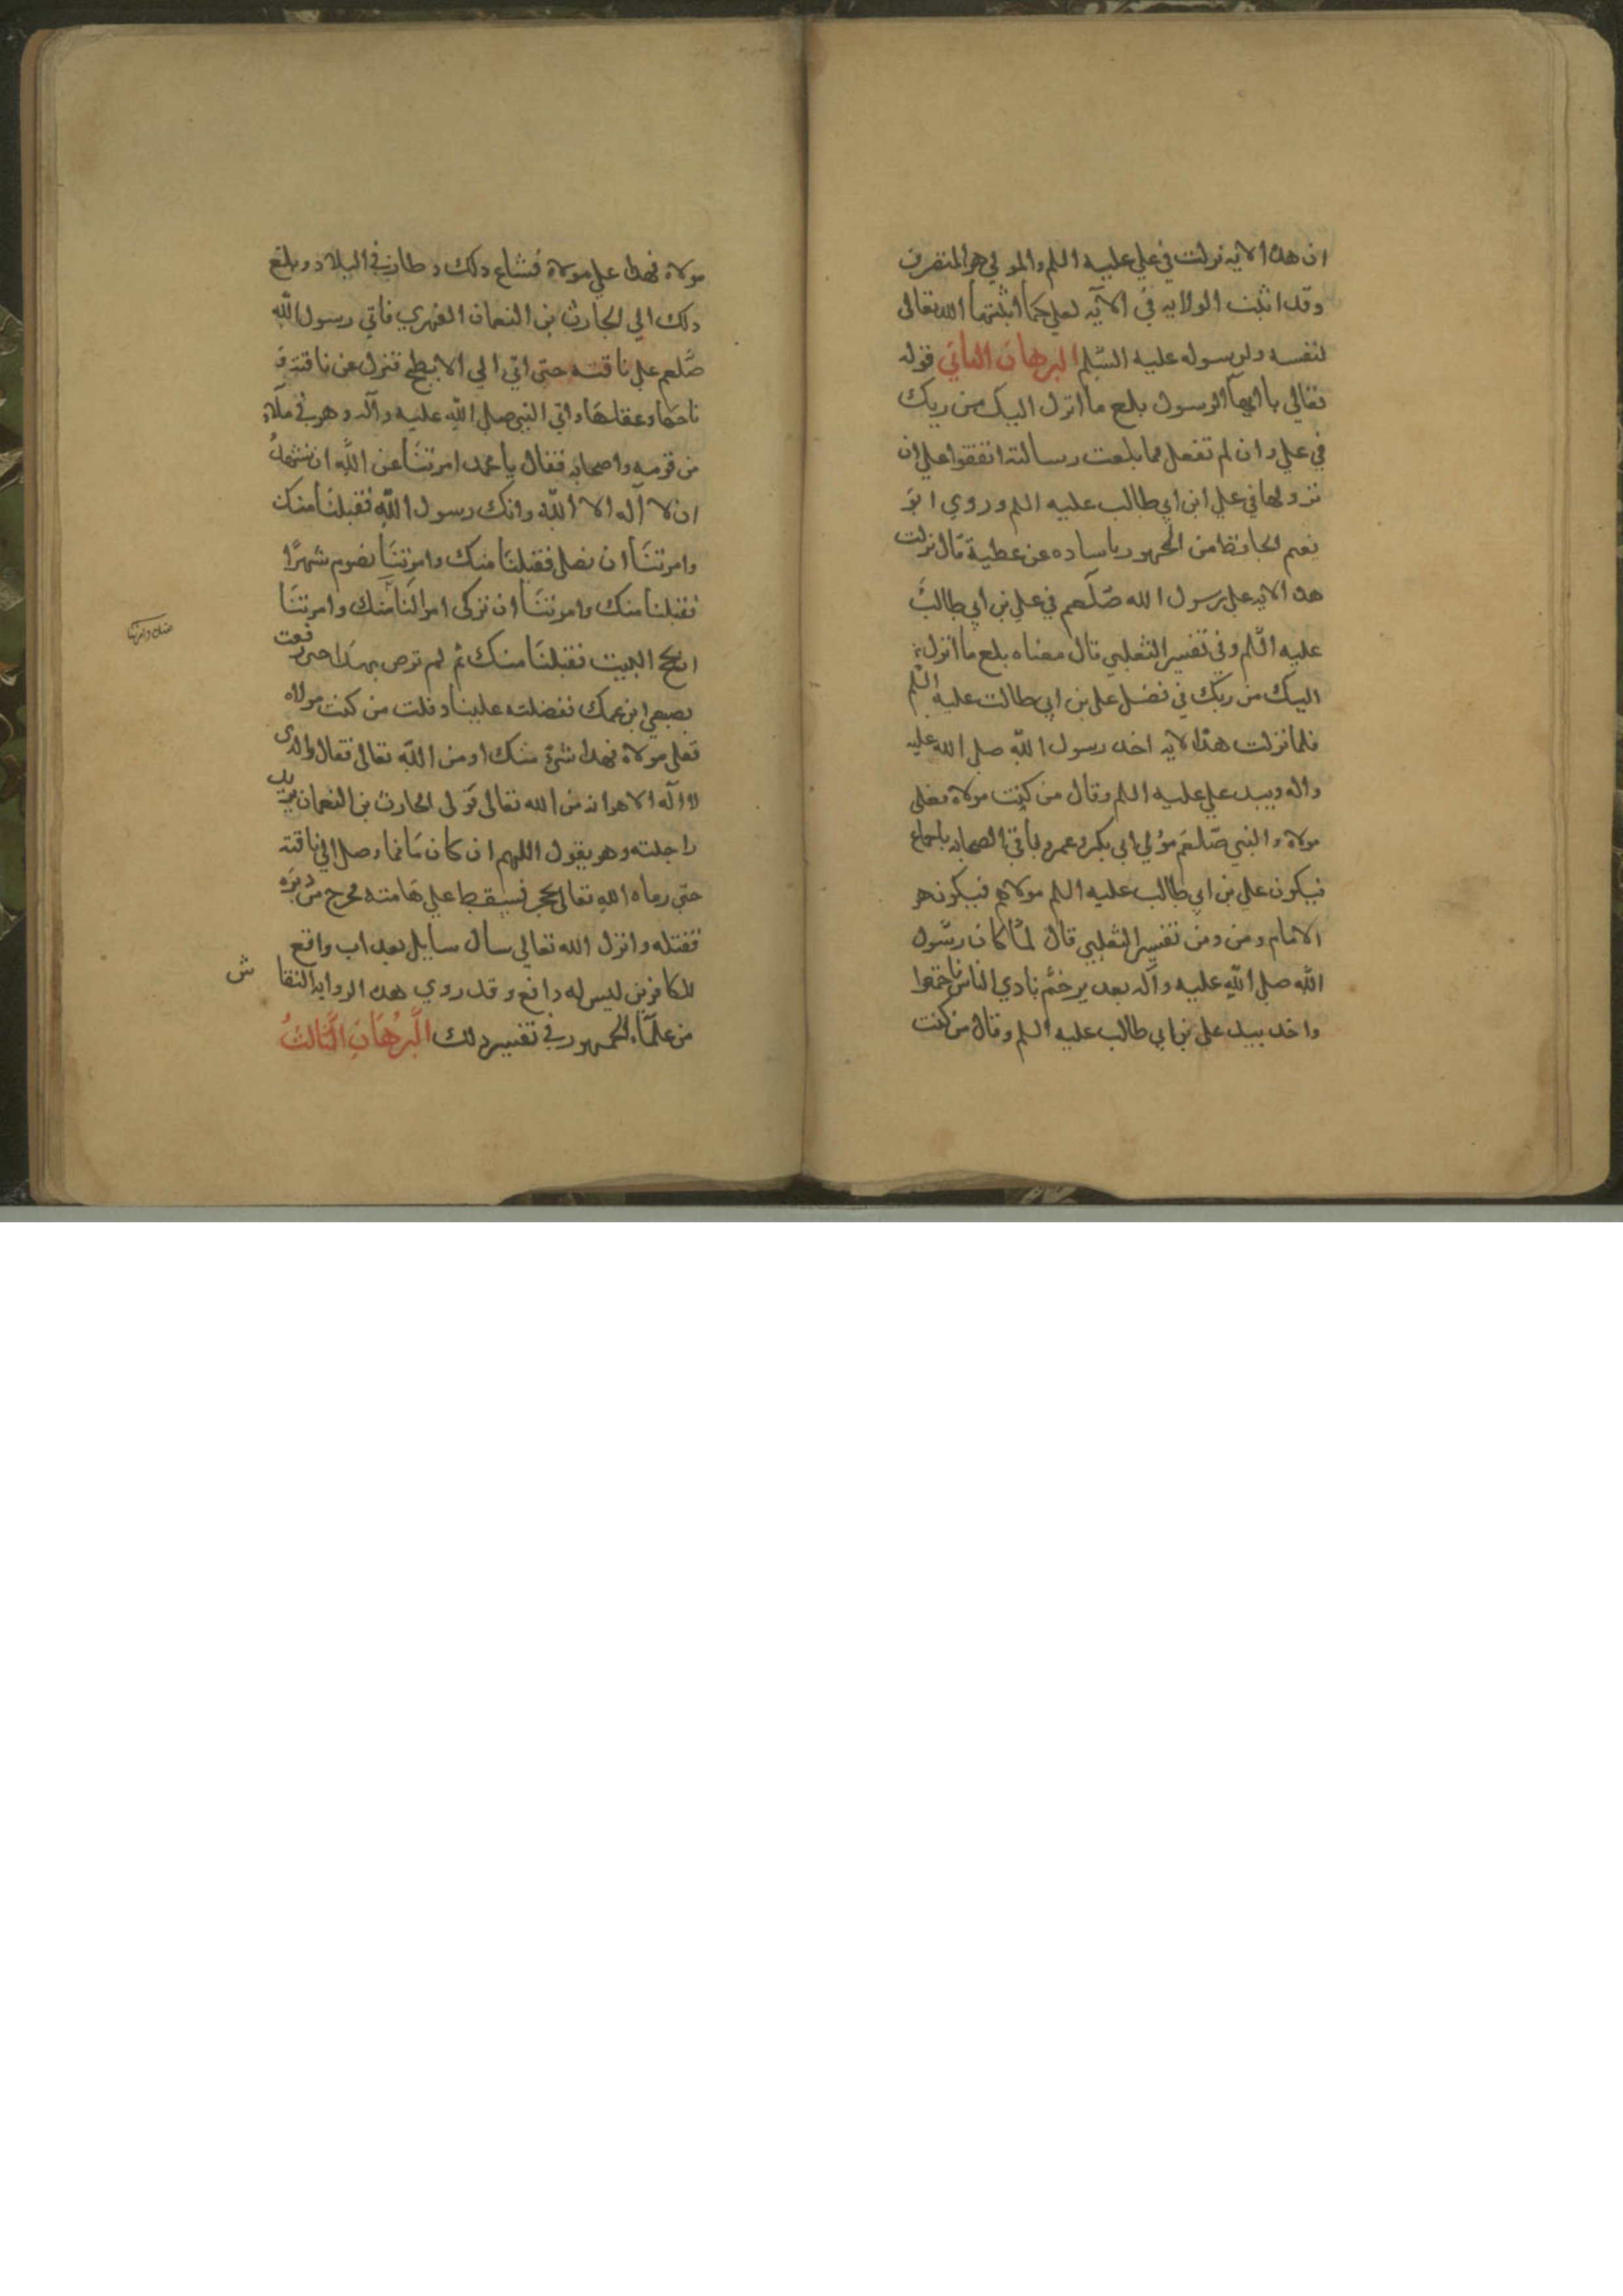 ان هذه الايه نزلت في علي عليه السلم والمولي هو المتصرف
وقد اثبت الولايه في الآيه لعلي كما اثبتها الله تعالى
لنفسه ولرسوله عليه السّلم البرهان الثاني قوله
تعالي يا ايها الرسول بلغ ما انزل اليك من ربك
في علي وان لم تفعل فما بلغت رسالته اتفقوا علي ان
نزولها في علي ابن ابي طالب عليه السلم وروي ابو
نعيم الحافظ من الجمهور باساده عن عطية قال نزلت
هذه الايه علي رسول الله صلّعم في علي بن ابي طالب
عليه السّلم وفي تفسير الثعلبي قال معناه بلغ ما انزل
اليك من ربّك في فضل علي بن ابي طالب عليه السلم
فلما نزلت هذه الايه اخد رسول اللّه صلي الله عليه
واله وبيد علي عليه السلم وقال من كنت مولاه فعلي
مولاه والنبي صلعم مولي ابي بكر وعمر وباقي الصحابه باجماع
فيكون علي بن ابي طالب عليه السلم مولاهم فيكون هو
الامام ومن ومن تفسير الثعلبي قال لمّا كان رسول
اللّه صلي اللّه عليه وآله بعدير خم نادي الناس فاجتمعوا
واخد بيد علي بن ابي طالب عليه السلم وقال من كنت
مولاه فهدا علي مولاه فشاع دلك وطار في البلاد وبلغ
دلك الي الحارث بن النعمان الفهري فاتي رسول اللّه
صلعم علي ناقته حتى اتي الي الابطح فنزل عن ناقته و
ناخها وعقلها واتي النبي صلي اللّه عليه وآله وهو في ملاء
من قومه واصحابه فقال يا محمد امرتنا عن اللّه ان نشهد
ان لا آله الا اللّه وانك رسول اللّه فقبلنا منك
وامرتنا ان نصلي فقبلنا منك وامرتنا نصوم شهرًا
فقبلنا منك وامرتنا ان نزكى اموالنا منك وامرتنا
منك وامرتنا
ان نحج البيت فقبلنا منك ثم لم ترص بهدا حتى رفعت
بصبعي ابن عمك ففضلته علينا وقلت من كنت مولاه
فعلي مولاه فهدا شئ منك او من اللّه تعالى فقال والدى
لا اله الا هو انه من الله تعالى فولى الحارث بن النعمان يريد
راحلته وهو يقول اللهم ان كان ما فما وصل الي ناقته
حتى رماه الله تعالى بحجر فسقط علي هامته فخرج من دبره
فقتله وانزل الله تعالي سال سايل بعداب واقع
للكافرين ليس له دافع وقد روي هده الروايه النقا ش
من علماء الجمهور في تفسير دلك البرهان الثالث